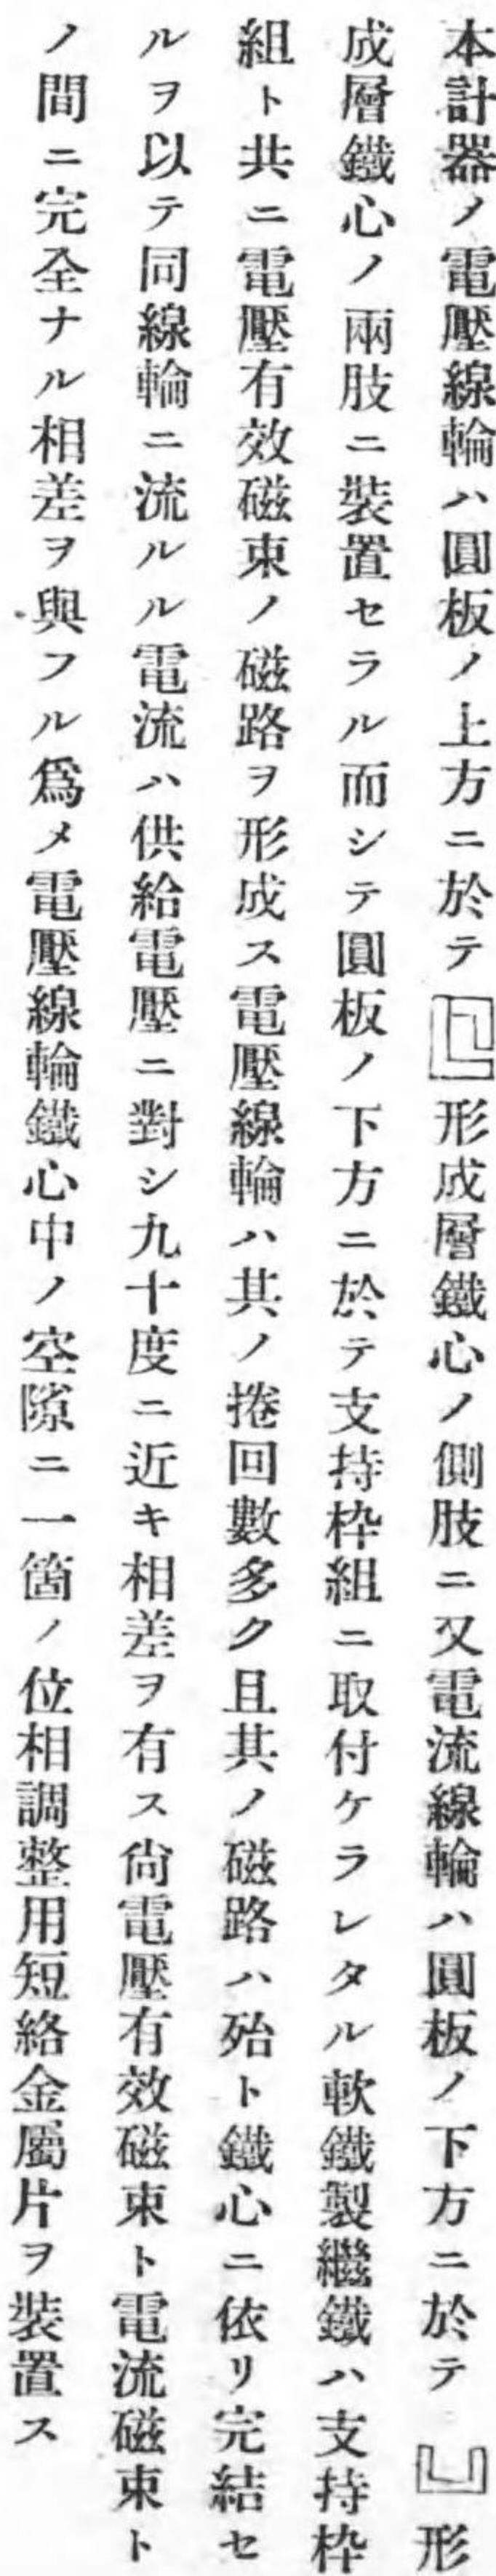 本計器ノ電壓線輪ハ圓板ノ上方ニ於テ形成層鐵心ノ側肢ニ又電流線輪ハ圓板ノ下方ニ於テ形
成層鐵心ノ兩肢ニ裝置セラル而シテ圓板ノ下方ニ於テ支持枠組ニ取付ケラレタル軟鐵製繼鐵ハ支持枠
組ト共ニ電壓有效磁束ノ磁路ヲ形成ス電壓線輪ハ其ノ捲回數多ク且其ノ磁路ハ殆ト鐵心ニ依リ完結セ
ルヲ以テ同線輪ニ流ルル電流ハ供給電壓ニ對シ九十度ニ近キ相差ヲ有ス尙電壓有效磁束ト電流磁束ト
ノ間ニ完全ナル相差ヲ與フル爲メ電壓線輪鐵心中ノ空隙ニ一箇ノ位相調整用短絡金屬片ヲ裝置ス